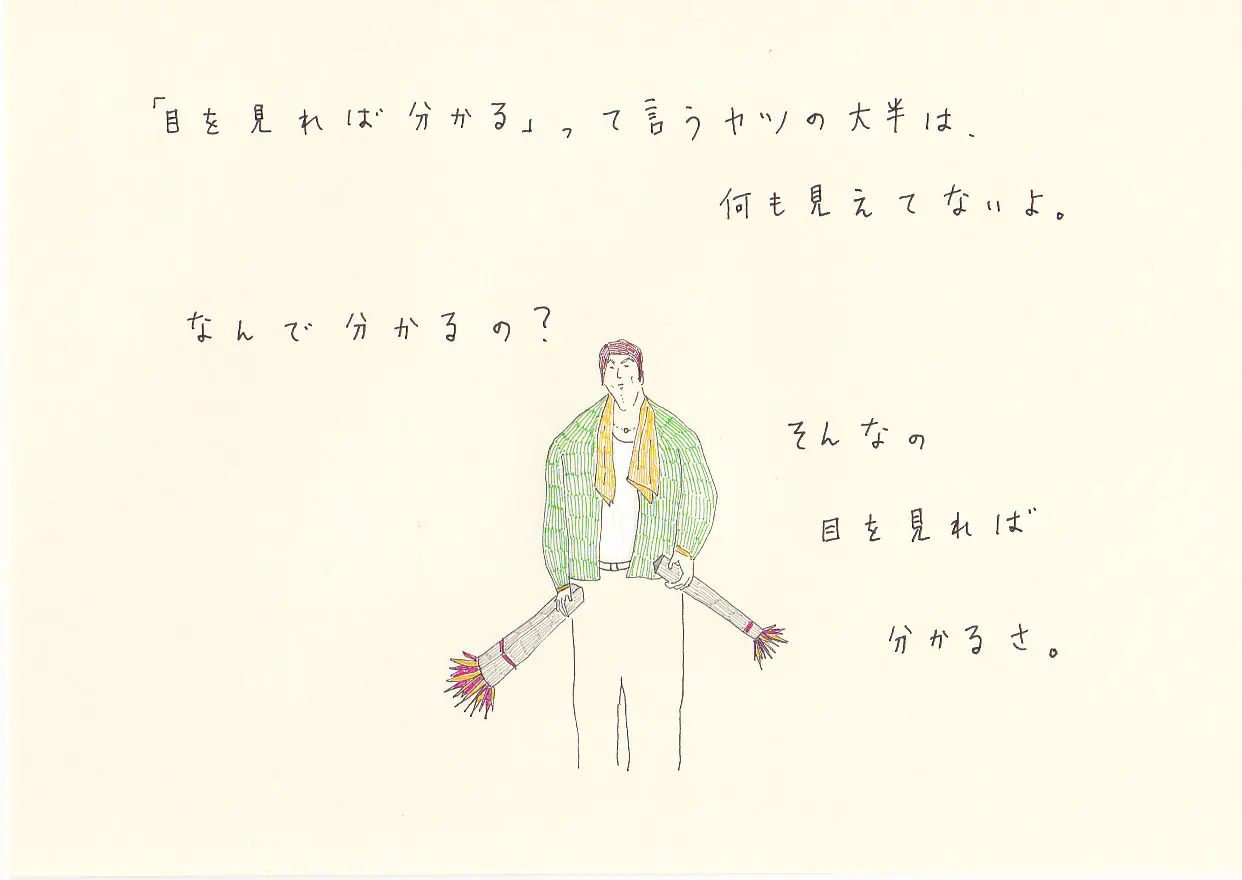 「目を見れば分かる」って言うヤツの大半は、
何も見えてないよ。
なんで分かるの？
そんなの
目を見れば
分かるさ。